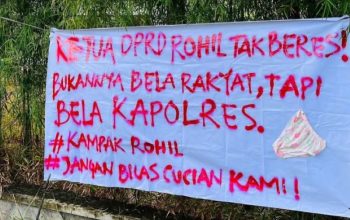 KETUA DPRD ROHIL TAK BERES!
BUKANNYA BELA RAKYAT, TAPI
BELA KAPOLRES.
#KAMPAK ROHIL
#JANGAN BILAS CUCIAN KAMI!